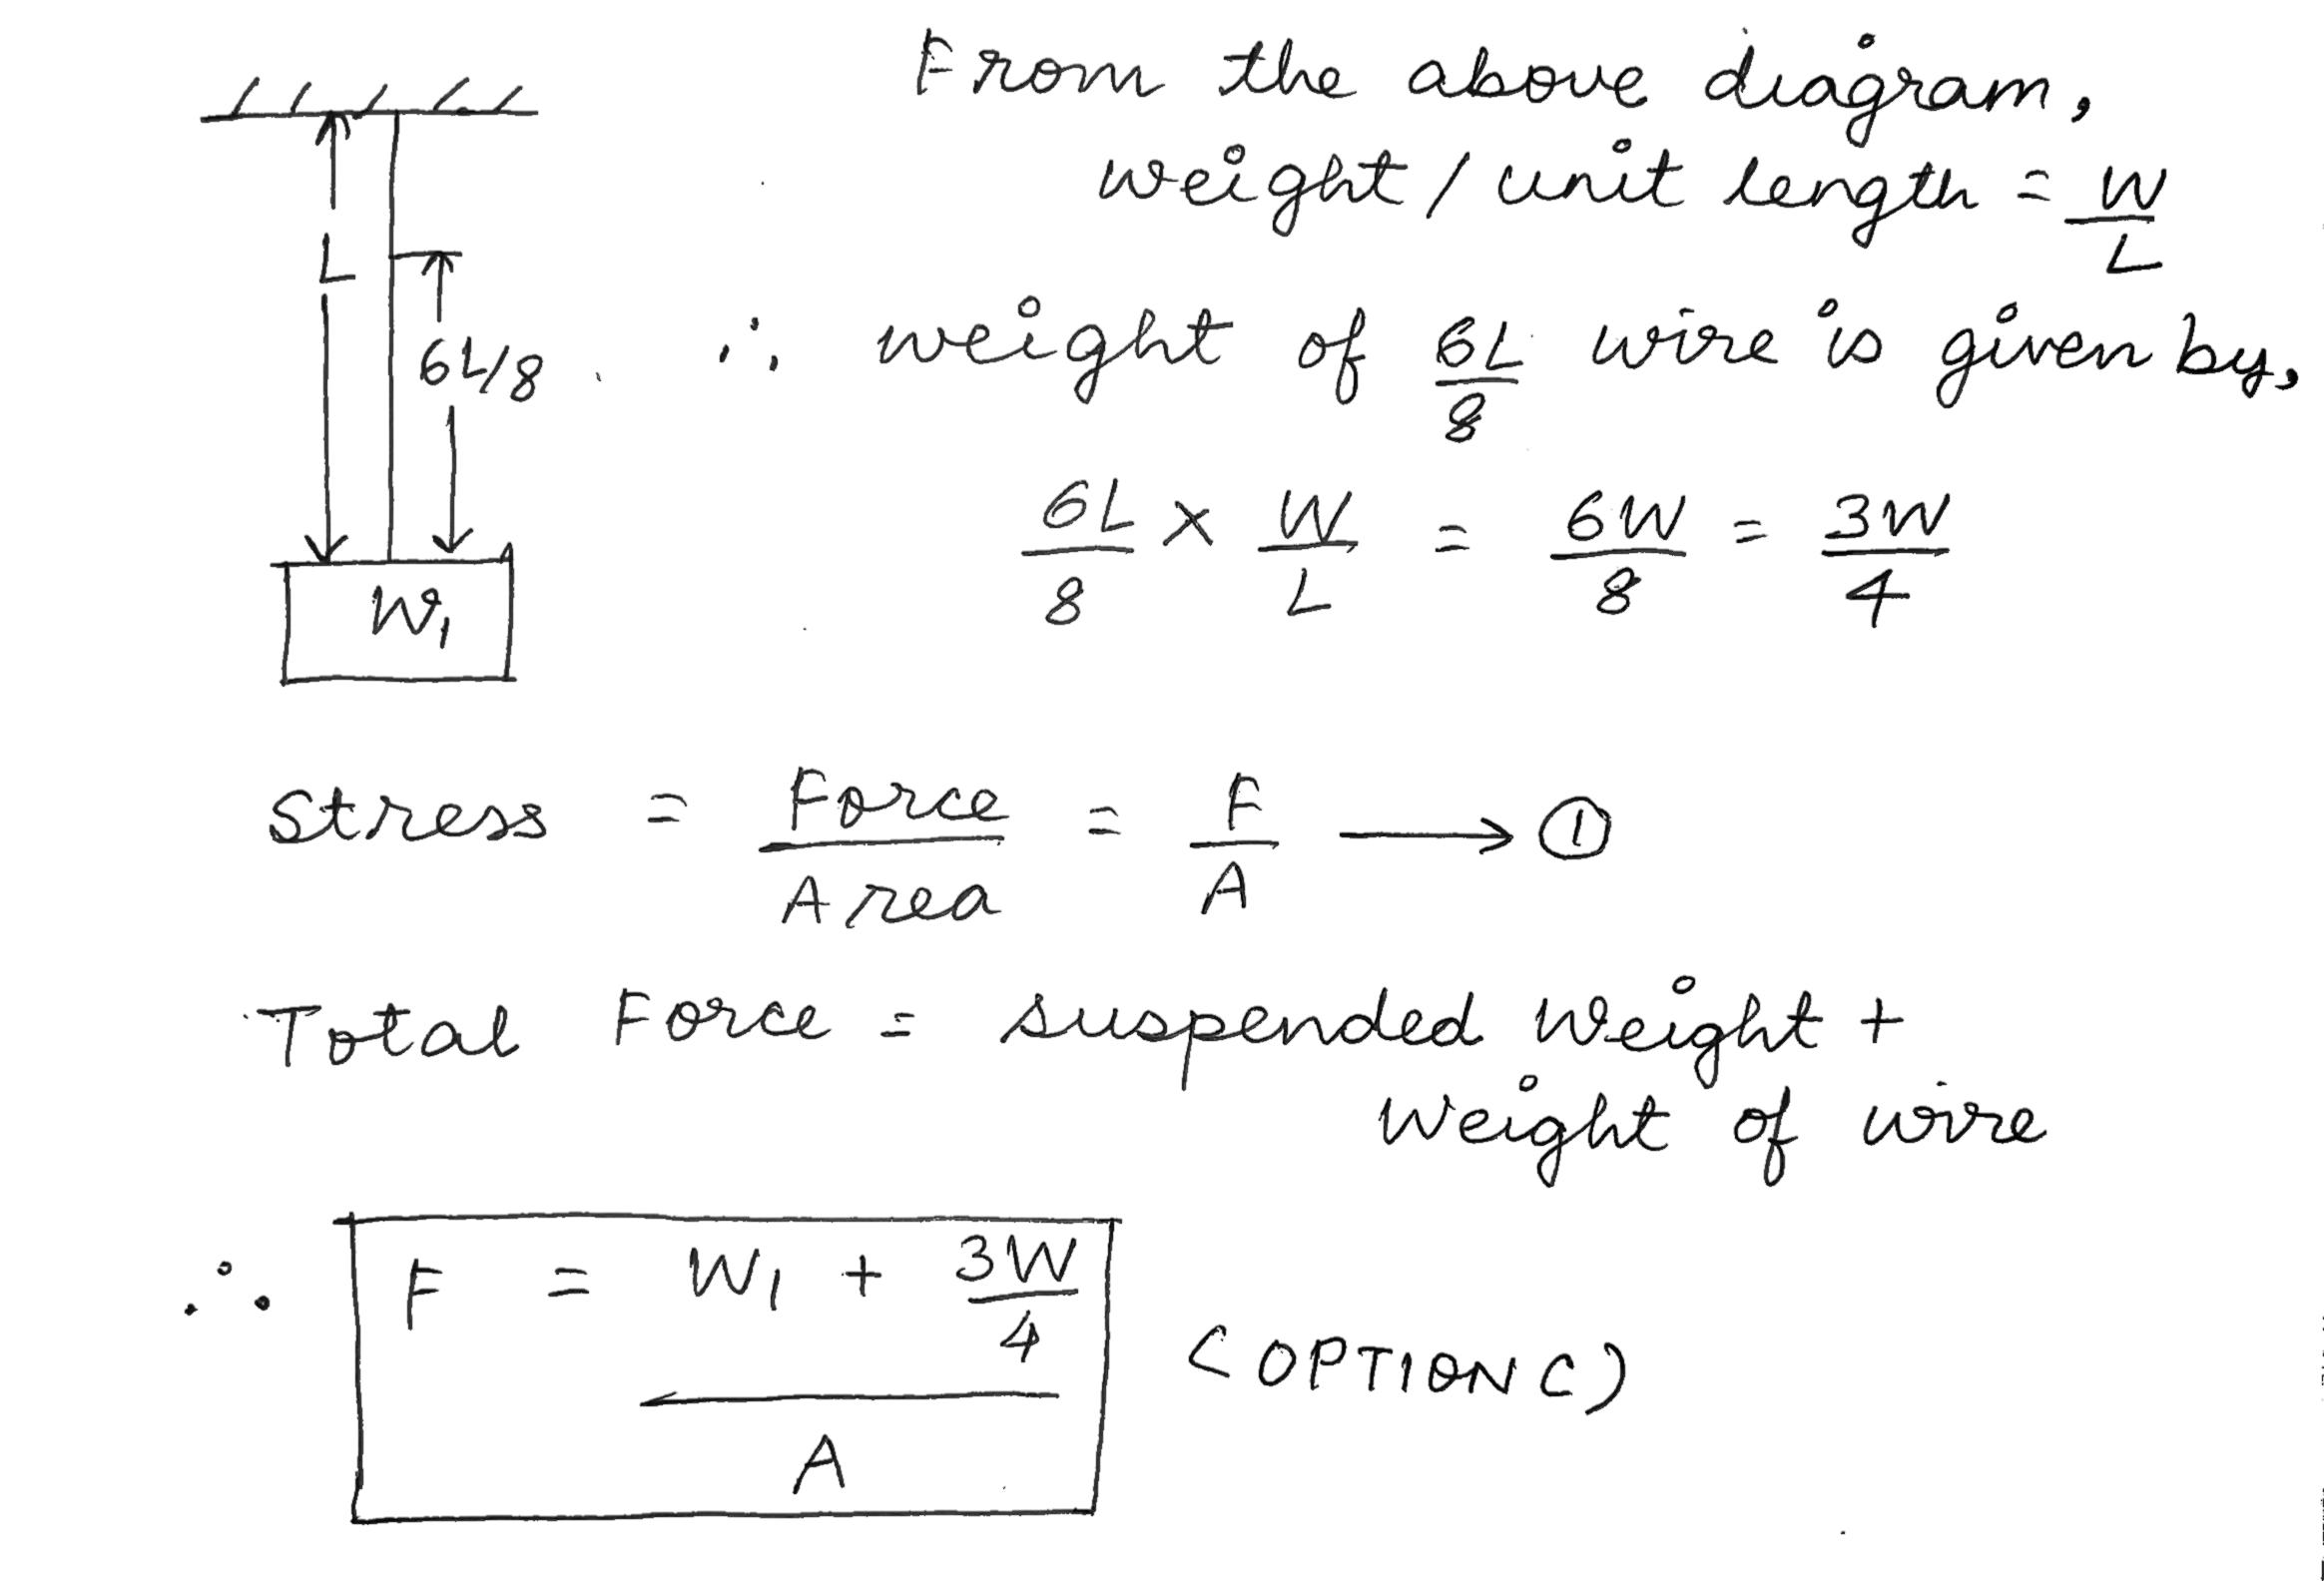 From the above diagram,
weight / unit length = W/L
L
6L/8
∴ weight of 6L/8 wire is given by,
6L/8 × W/L = 6W/8 = 3W/4
W₁
Stress = Force/Area = F/A ⟶ ①
Total Force = suspended weight +
weight of wire
∴ F = W₁ + 3W/4
A
(OPTION C)